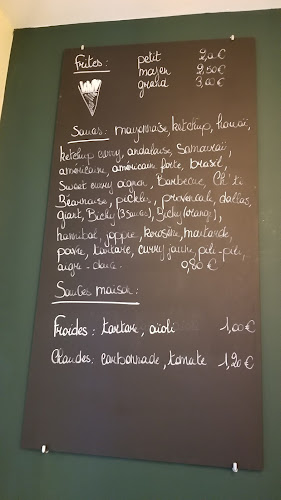 Frites : petit 2,00€
moyen 2,50€
grand 3,00€
Sauces : mayonnaise, ketchup, hawaï,
ketchup curry, andalouse, Samouraï,
américaine, américaine forte, brasil,
Sweet curry oignon, Barbecue, Ch'ti,
Béarnaise, pickles, provençale, dallas,
giant, Bicky (3 sauces), Bicky (orange),
hannibal, joppie, kerosène, moutarde,
poivre, tartare, curry jaune, pili-pili,
aigre-doux 0,80€
Sauces maison :
Froides : tartare, aïoli 1,00€
Chaudes : carbonnade, tomate 1,20€